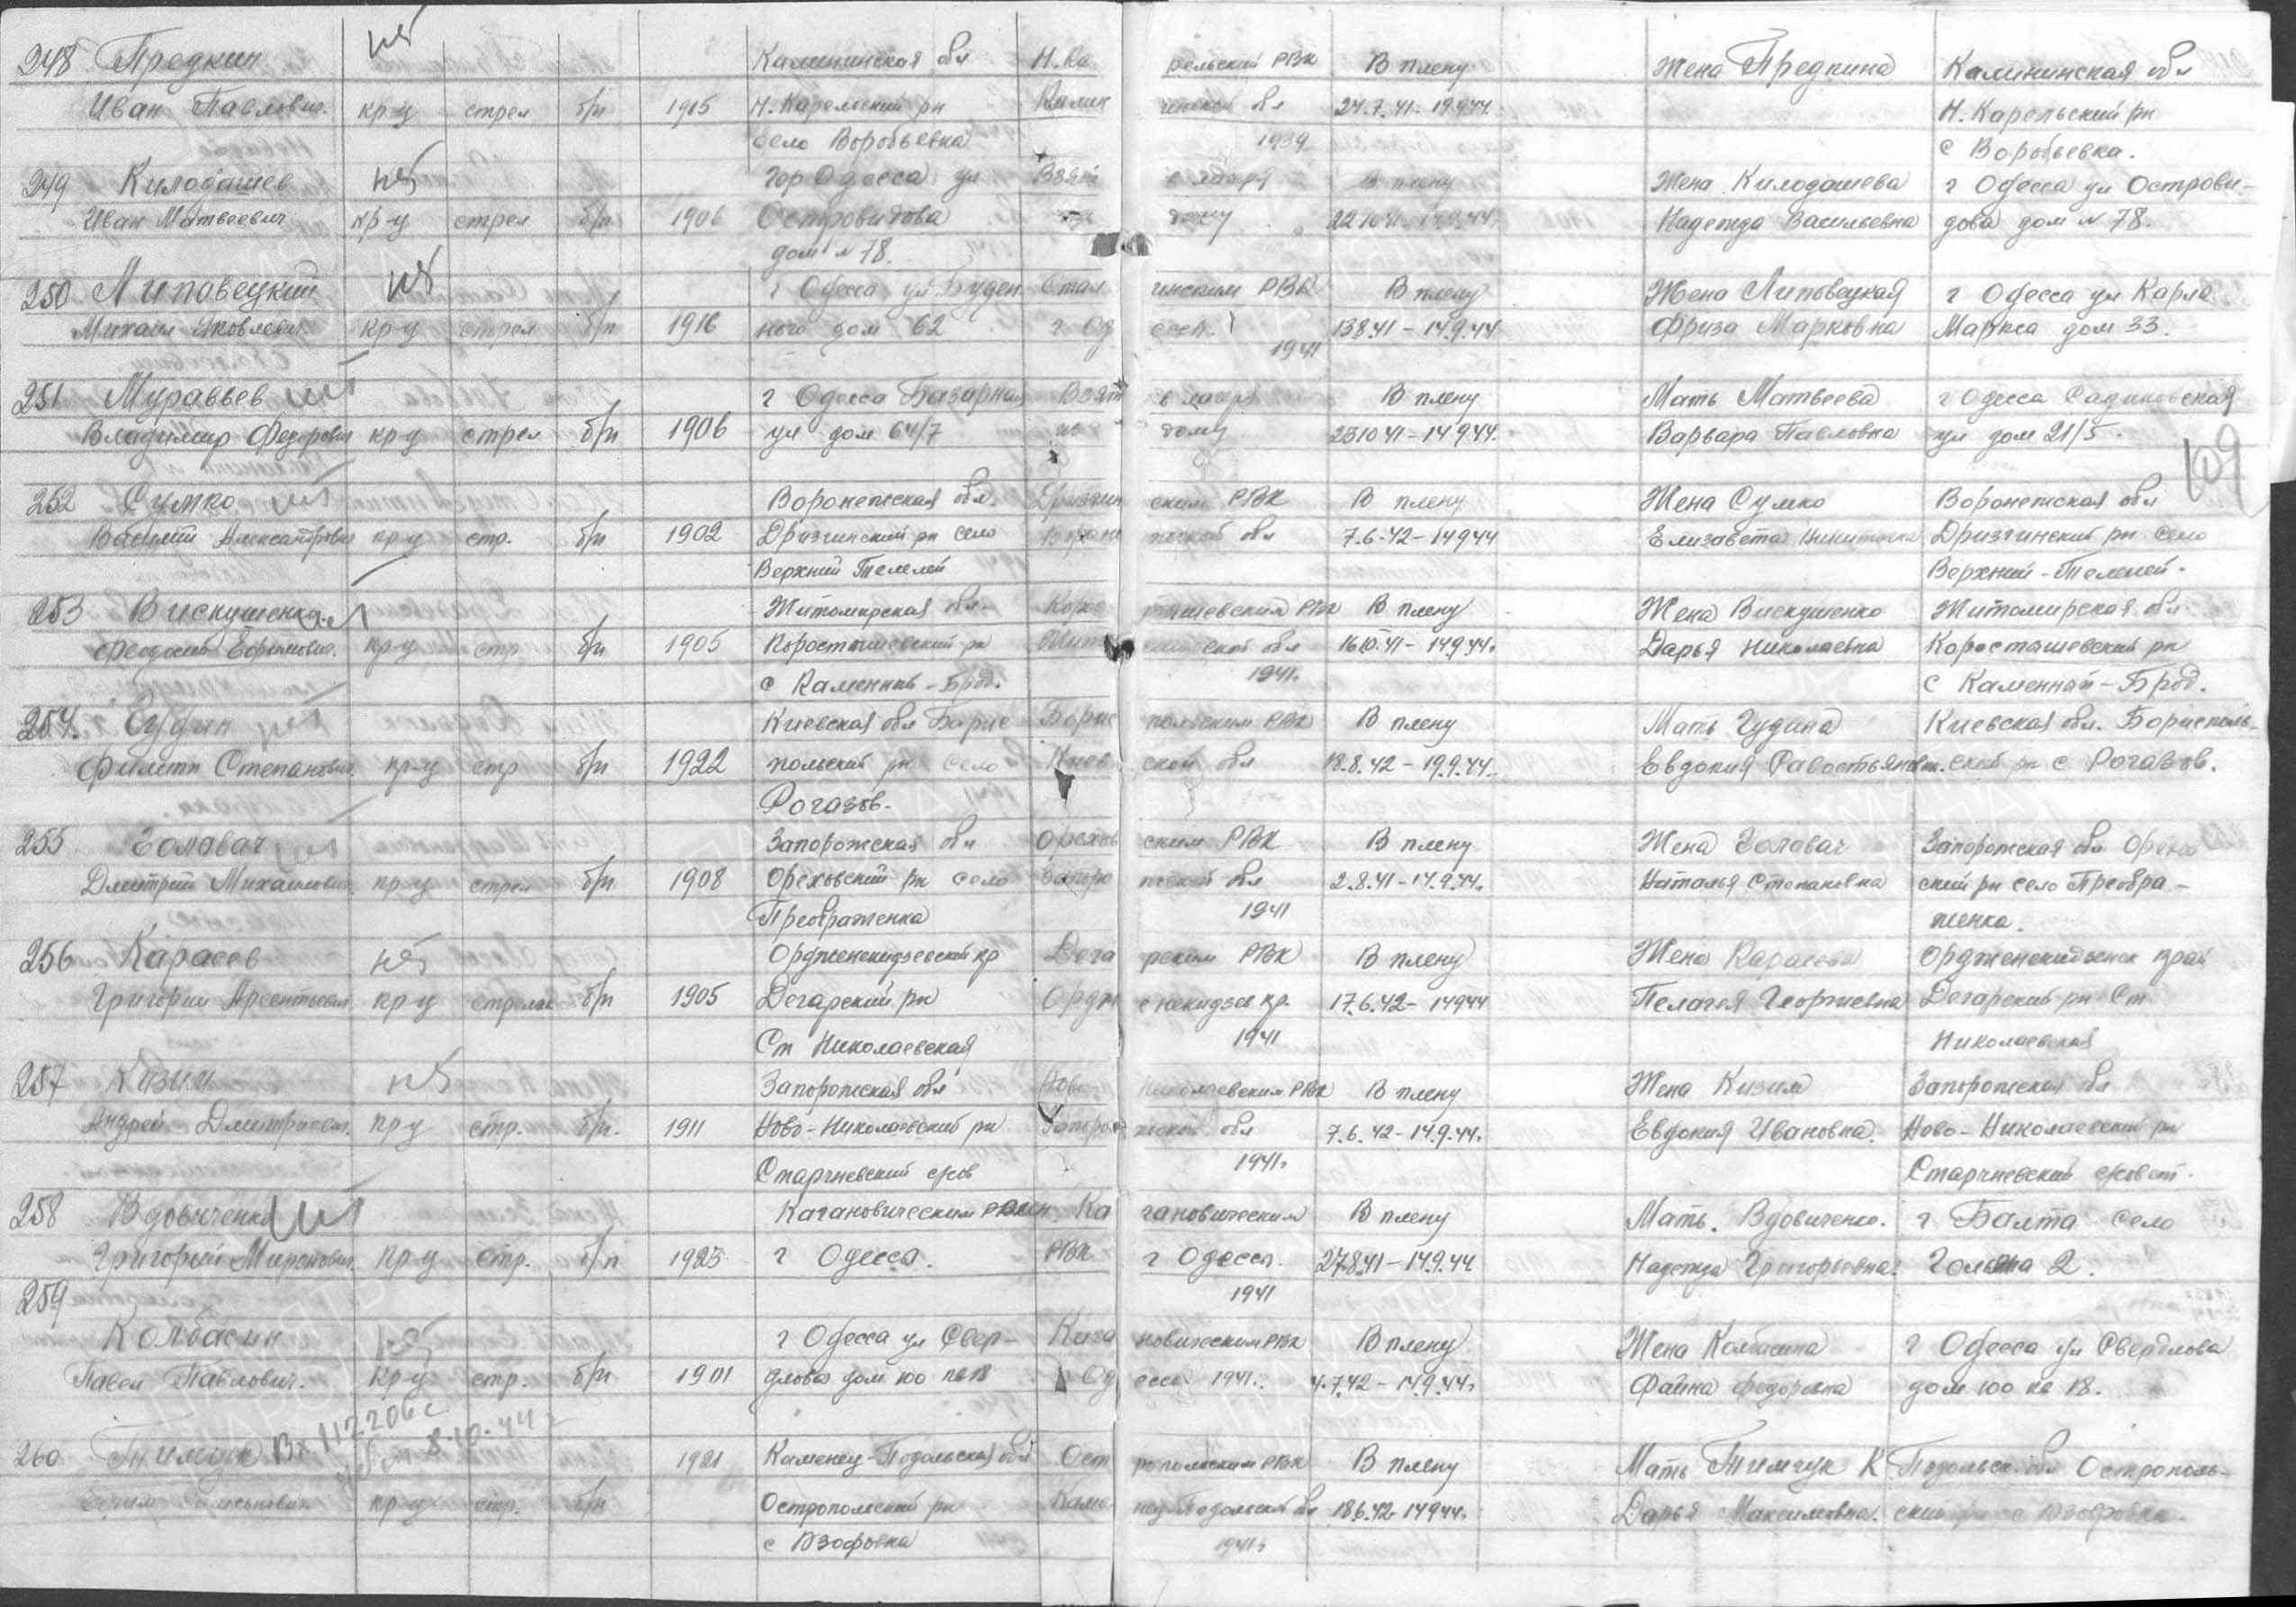 248 Предкин нб Калининская обл Н.Ка рельский РВК В плену Жена Предкина Калининская обл
Иван Павлович. кр-ц стрел б/п 1915 Н. Карельский рн Калин инской обл 24.7.41-19.9.44. Н. Карельский рн
село Воробьевка 1939 с Воробьевка.
249 Килодашев нб гор Одесса ул Взят в лагря В плену Жена Килодашева г Одесса ул Острови-
Иван Матвеевич кр-ц стрел б/п 1906 Островидова дому 22.10.41-14.9.44. Надежда Васильевна дова дом № 78.
дом № 78.
250 Липовецкий нб г Одесса ул Буден Стал инским РВК В плену Жена Липовецкая г Одесса ул Карла
Михаил Яковлевич кр-ц стрел б/п 1916 ного дом 62 г Од есса. 13.8.41-14.9.44 Фриза Марковна Маркса дом 33.
1941
251 Муравьев шт г Одесса Базарная Взят в лагря В плену Мать Матвеева г Одесса Садиковская
Владимир Федорович кр-ц стрел б/п 1906 ул дом 64/7 из дому 23.10.41-14.9.44. Варвара Павловна ул дом 21/5.
109
252 Сумко шт Воронежская обл. Дрязгин ским РВК В плену Жена Сумко Воронежская обл
Василий Александрович кр-ц стр. б/п 1902 Дрязгинский рн село Вороне жской обл 7.6.42-14.9.44 Елизавета Никитична Дрязгинский рн село
Верхний Телелей Верхний-Телелей.
253 Вискушенко Житомирская обл. Коро тышевским РВК В плену Жена Вискушенко Житомирская обл
Феодосий Ефимович. кр-ц стр б/п 1905 Коростышевский рн Жит 16.10.41-14.9.44. Дарья Николаевна Коросташевский рн
с Каменный-Брод. 1941. с Каменный-Брод.
254. Гудин шт Киевская обл Борис Борис польским РВК В плену Мать Гудина Киевская обл. Борисполь-
Филипп Степанович кр-ц стр б/п 1922 польский рн село Киев ской обл 18.8.42-19.9.44. Евдокия ский рн с Рогазов.
Рогазов.
255 Головач шт Запорожская обл Орехов ским РВК В плену Жена Головач Запорожская обл Орехов
Дмитрий Михайлович кр-ц стрел б/п 1908 Ореховский рн село Запоро жской обл 2.8.41-14.9.44. Наталья Степановна ский рн село Преобра-
Преображенка 1941 женка.
256 Карасев нб Орджоникидзевский кр Дега рским РВК В плену Жена Карасева Орджоникидзевск край
Григорий Арсентьевич кр-ц стрелок б/п 1905 Дегарский рн Ордж оникидзев кр. 17.6.42-14.9.44 Пелагея Георгиевна Дегарский рн Ст
Ст Николаевская 1941 Николаевская
257 Кизим нб Запорожская обл Ново Николаевским РВК В плену Жена Кизим Запорожская обл
Андрей Дмитриевич. кр-ц стр. б/п. 1911 Ново-Николаевский рн Запоро жской обл 7.6.42-14.9.44. Евдокия Ивановна Ново-Николаевский рн
Старчневский с/сов 1941. Старчневский с/совет.
258 Вдовиченко шт Кагановическим район Ка гановическим В плену Мать. Вдовиченко. г Балта село
Григорий Миронович кр-ц стр. б/п 1923 г Одесса. РВК г Одесса. 27.8.41-14.9.44 Надежда Григорьевна. Гольма 2.
259 1941
Колбасин нб г Одесса ул Свер- Кага новическим РВК В плену Жена Колбасина г Одесса ул Свердлова
Павел Павлович. кр-ц стр. б/п 1901 длова дом 100 кв 18 г Од есса 1941. 4.7.42-14.9.44. Фаина Федоровна дом 100 кв 18.
Вх 112206с
8.10.44 г
260 Тимчук 1921 Каменец-Подольская обл Ост ропольским РВК В плену Мать Тимчук К Подольск. обл Острополь-
кр-ц стр. б/п Остропольский рн Каме нец-Подольской обл 18.6.42-14.9.44. Дарья Максимовна. ский
с Юзофовка 1941.